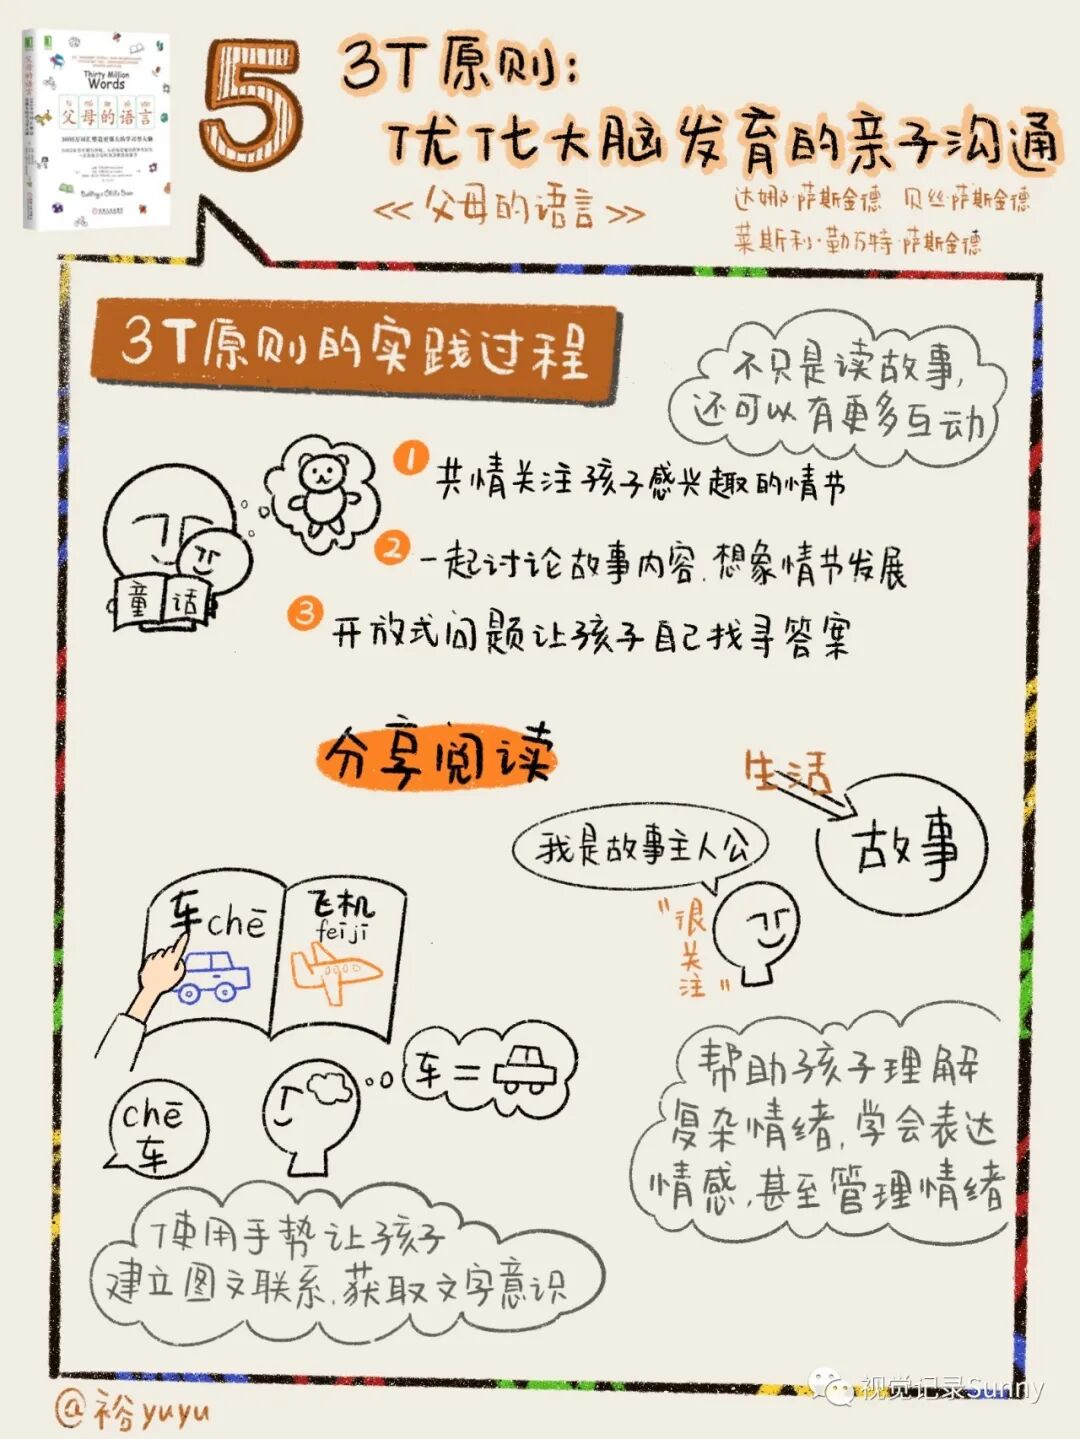 Thirty Million
Words
父母的语言
5
3T原则:
优化大脑发育的亲子沟通
《父母的语言》
达娜·萨斯金德 贝丝·萨斯金德
莱斯利·勒万特·萨斯金德
3T原则的实践过程
不只是读故事,
还可以有更多互动
1 共情关注孩子感兴趣的情节
2 一起讨论故事内容,想象情节发展
3 开放式问题让孩子自己找寻答案
童话
分享阅读
生活
故事
我是故事主人公
"很关注"
车chē
飞机
feījī
车=
chē
车
帮助孩子理解
复杂情绪,学会表达
情感,甚至管理情绪
使用手势让孩子
建立图文联系,获取文字意识
@裕yuyu
视觉记录Sunny